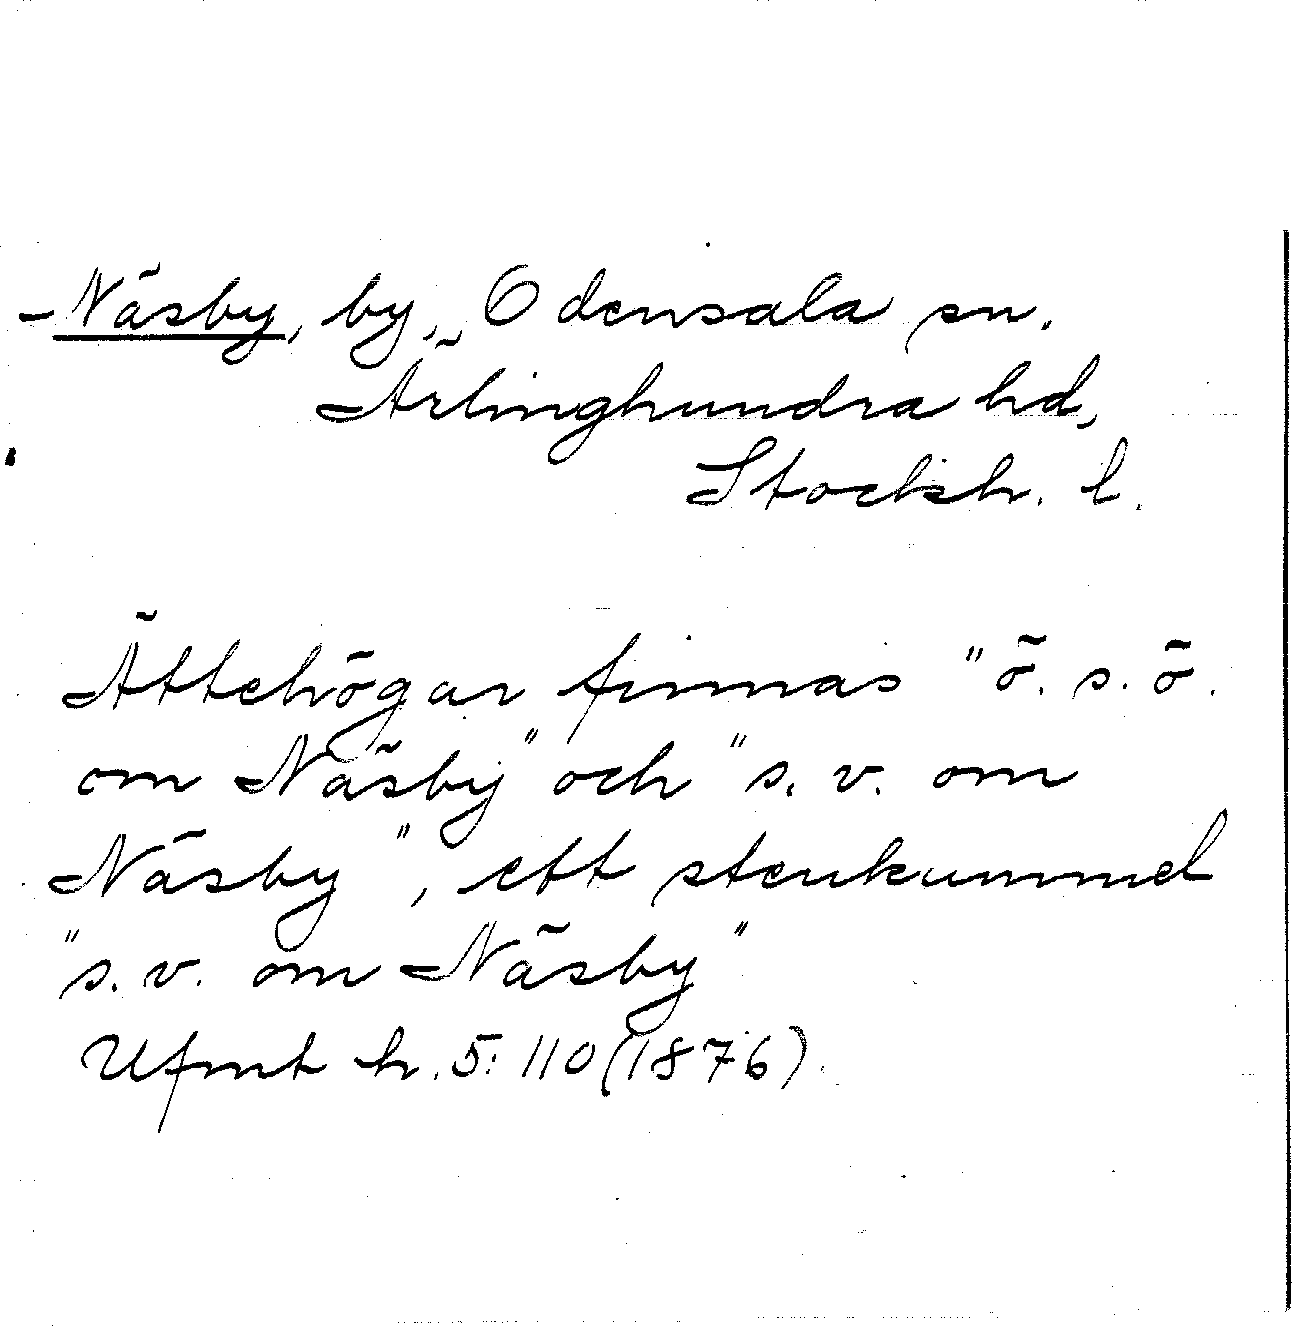 - Näsby, by, Odensala sn.
Ärlinghundra hd,
Stockh. l.
Ättehögar finnas "ö. s. ö.
om Näsby" och "s. v. om
Näsby", ett stenkummel
"s. v. om Näsby"
Ufmt h. 5: 110 (1876).